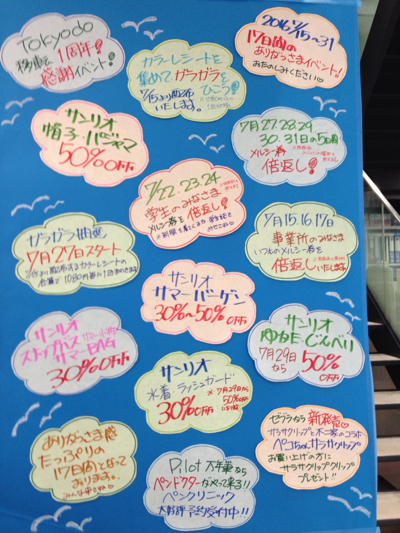 Tokyodo
移転 1周年!
感謝イベント!
カラーレシートを
集めてガラガラを
ひこう!
7/15より配布
いたします。
2016 7/15~31
17日間の
ありがっさまイベント!
おたのしみください
サンリオ
帽子・パジャマ
50%OFF
7/22.23.24
学生のみなさま
メルシー券を倍返し!
7月27.28.29
30.31日の5日間
メルシー券
倍返し!
ガラガラ抽選
7月27日スタート
7月15.16.17日
事業所のみなさま
いつものメルシー券を
倍返しいたします。
サンリオ
サマーバーゲン
30%~50%OFF
サンリオ
サマーBAG
30%OFF
サンリオ
水着 ラッシュガード
30%OFF
※7月29日から
50%OFF
サンリオ
ゆかた・じんべい
7月29日
なら
50%
OFF
ありがっさま感
たっぷりの
17日間となって
おります。
Pilot 万年筆なら
ペンドクターがやって来る!!
ペンクリニック
大好評予約受付中!!
ゼブラなら新発売
サラサクリップと不二家のコラボ
ペコちゃんサラサクリップ
お買い上げの方に
サラサクリップクリップ
プレゼント!!